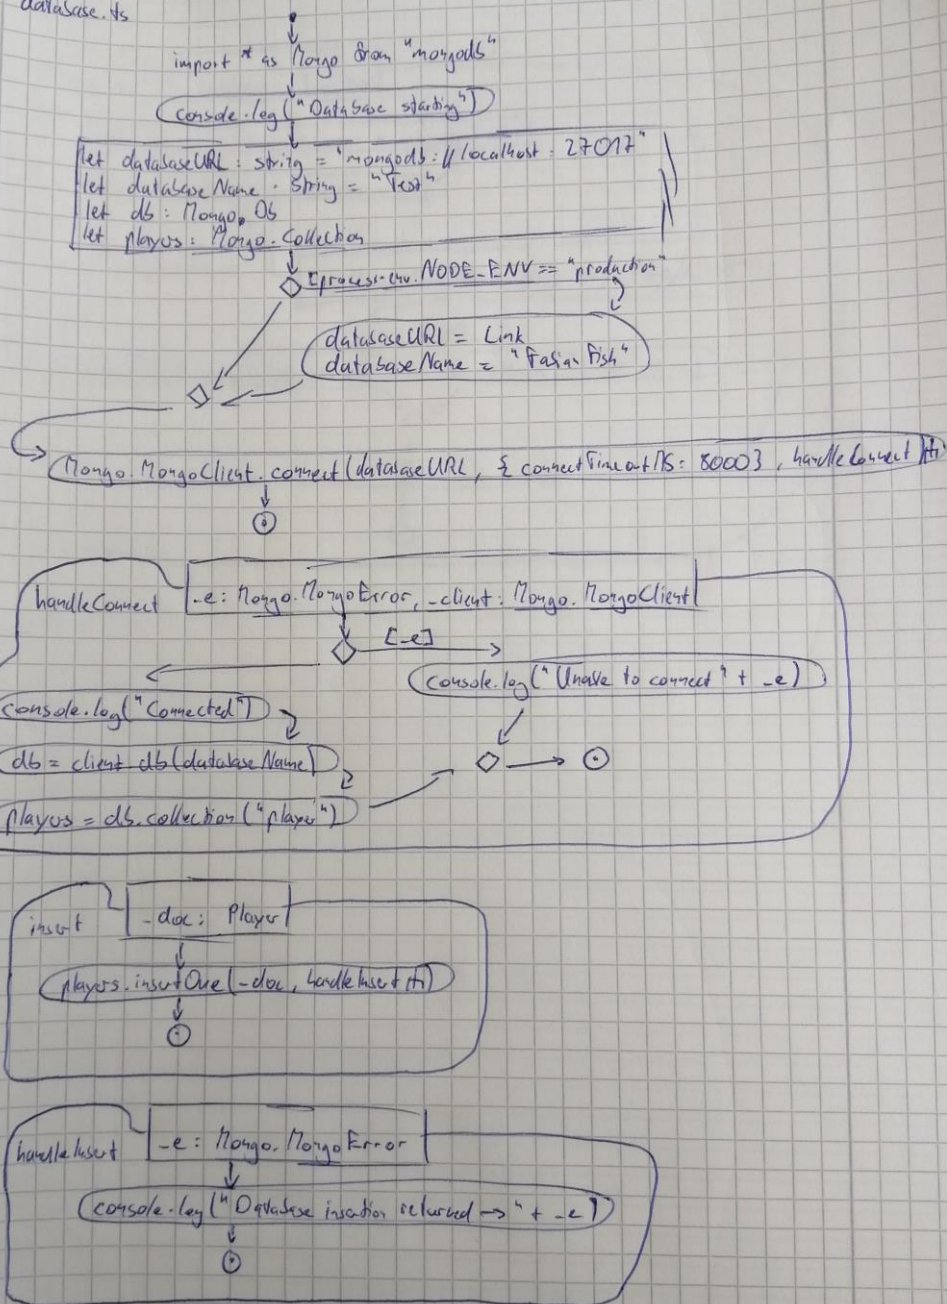 database.ts
import * as Mongo from "mongodb"
console.log("Database starting")
let databaseURL: string = "mongodb://localhost:27017"
let databaseName: string = "Test"
let db: Mongo.Db
let players: Mongo.Collection
[process.env.NODE_ENV == "production"
databaseURL = Link
databaseName = "Fish"
Mongo.MongoClient.connect(databaseURL, {connectTimeoutMS: 8000}, handleConnect)
handleConnect
_e: Mongo.MongoError, _client: Mongo.MongoClient
[_e]
console.log("Unable to connect" + _e)
console.log("Connected")
db = client.db(databaseName)
players = db.collection("player")
insert
_doc: Player
players.insertOne(_doc, handleInsert)
handleInsert
_e: Mongo.MongoError
console.log("Database insertion returned -> " + _e)